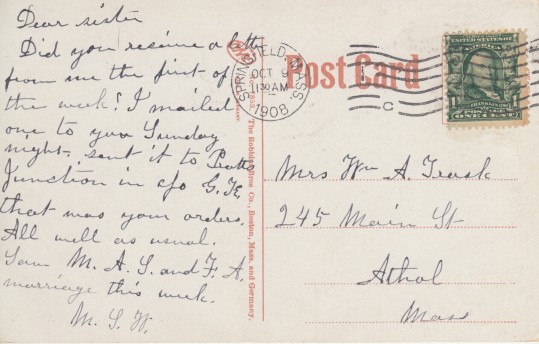 Dear sister
Did you receive a letter
from me the first of
the week? I mailed
one to you Sunday
night, sent it to Pratts
Junction in c/o G. Fk
that was your orders.
All well as usual.
Saw M. A. S. and F. A.
marriage this week.
M. S. W.
The Robbins Bros Co., Boston, Mass. and Germany.
SPRINGFIELD, MASS.
OCT 9
11 30 AM
1908
C
Post Card
AMERICA
FRANKLIN
POSTAGE
ONE CENT
Mrs Wm A. Trask
245 Main St
Athol
Mass